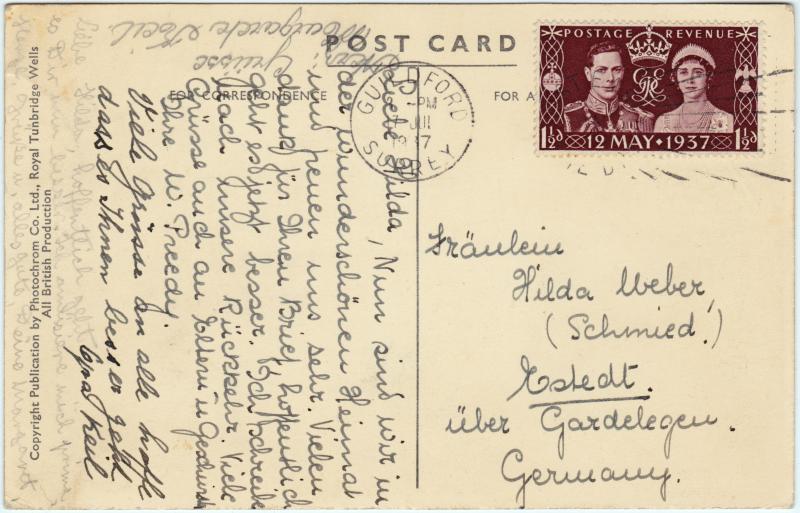 POST CARD
FOR CORRESPONDENCE
FOR A
POSTAGE REVENUE
1½D 12 MAY · 1937 1½D
GUILDFORD
PM
JUL
1937
SURREY
Copyright Publication by Photochrom Co. Ltd., Royal Tunbridge Wells
All British Production
Liebe Hilda, Nun sind wir in
der wunderschönen Heimat
und freuen uns sehr. Vielen
dank für Ihren Brief, hoffentlich
geht es jetzt besser. Ich schreibe
nach unsere Rückkehr. Viele
Grüsse auch an Eltern u Geschwister
Ihre W. Preedy.
Viele Grüsse an alle hoffe
dass es Ihnen besser geht
Keil
Grüsse
Margarete Keil.
Liebe Hilda, hoffentlich geht
Fräulein
Hilda Weber
(Schmied.)
Estedt.
über Gardelegen.
Germany.